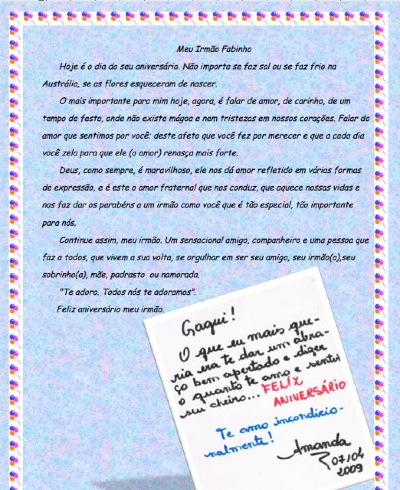 Meu Irmão Fabinho
Hoje é o dia do seu aniversário. Não importa se faz sol ou se faz frio na
Austrália, se as flores esqueceram de nascer.
O mais importante para mim hoje, agora, é falar de amor, de carinho, de um
tempo de festa, onde não existe mágoa e nem tristezas em nossos corações. Falar do
amor que sentimos por você: deste afeto que você fez por merecer e que a cada dia
você zela para que ele (o amor) renasça mais forte.
Deus, como sempre, é maravilhoso, ele nos dá amor refletido em várias formas
de expressão, e é este o amor fraternal que nos conduz, que aquece nossas vidas e
nos faz dar os parabéns a um irmão como você que é tão especial, tão importante
para nós.
Continue assim, meu irmão. Um sensacional amigo, companheiro e uma pessoa que
faz a todos, que vivem a sua volta, se orgulhar em ser seu amigo, seu irmão(a),seu
sobrinho(a), mãe, padrasto ou namorada.
"Te adoro. Todos nós te adoramos".
Feliz aniversário meu irmão.
Gagui!
O que eu mais que-
ria era te dar um abra-
ço bem apertado e dizer
o quanto te amo e senti
seu cheiro... FELIZ
ANIVERSÁRIO
Te amo incondicio-
nalmente!
Amanda
07/04
2009